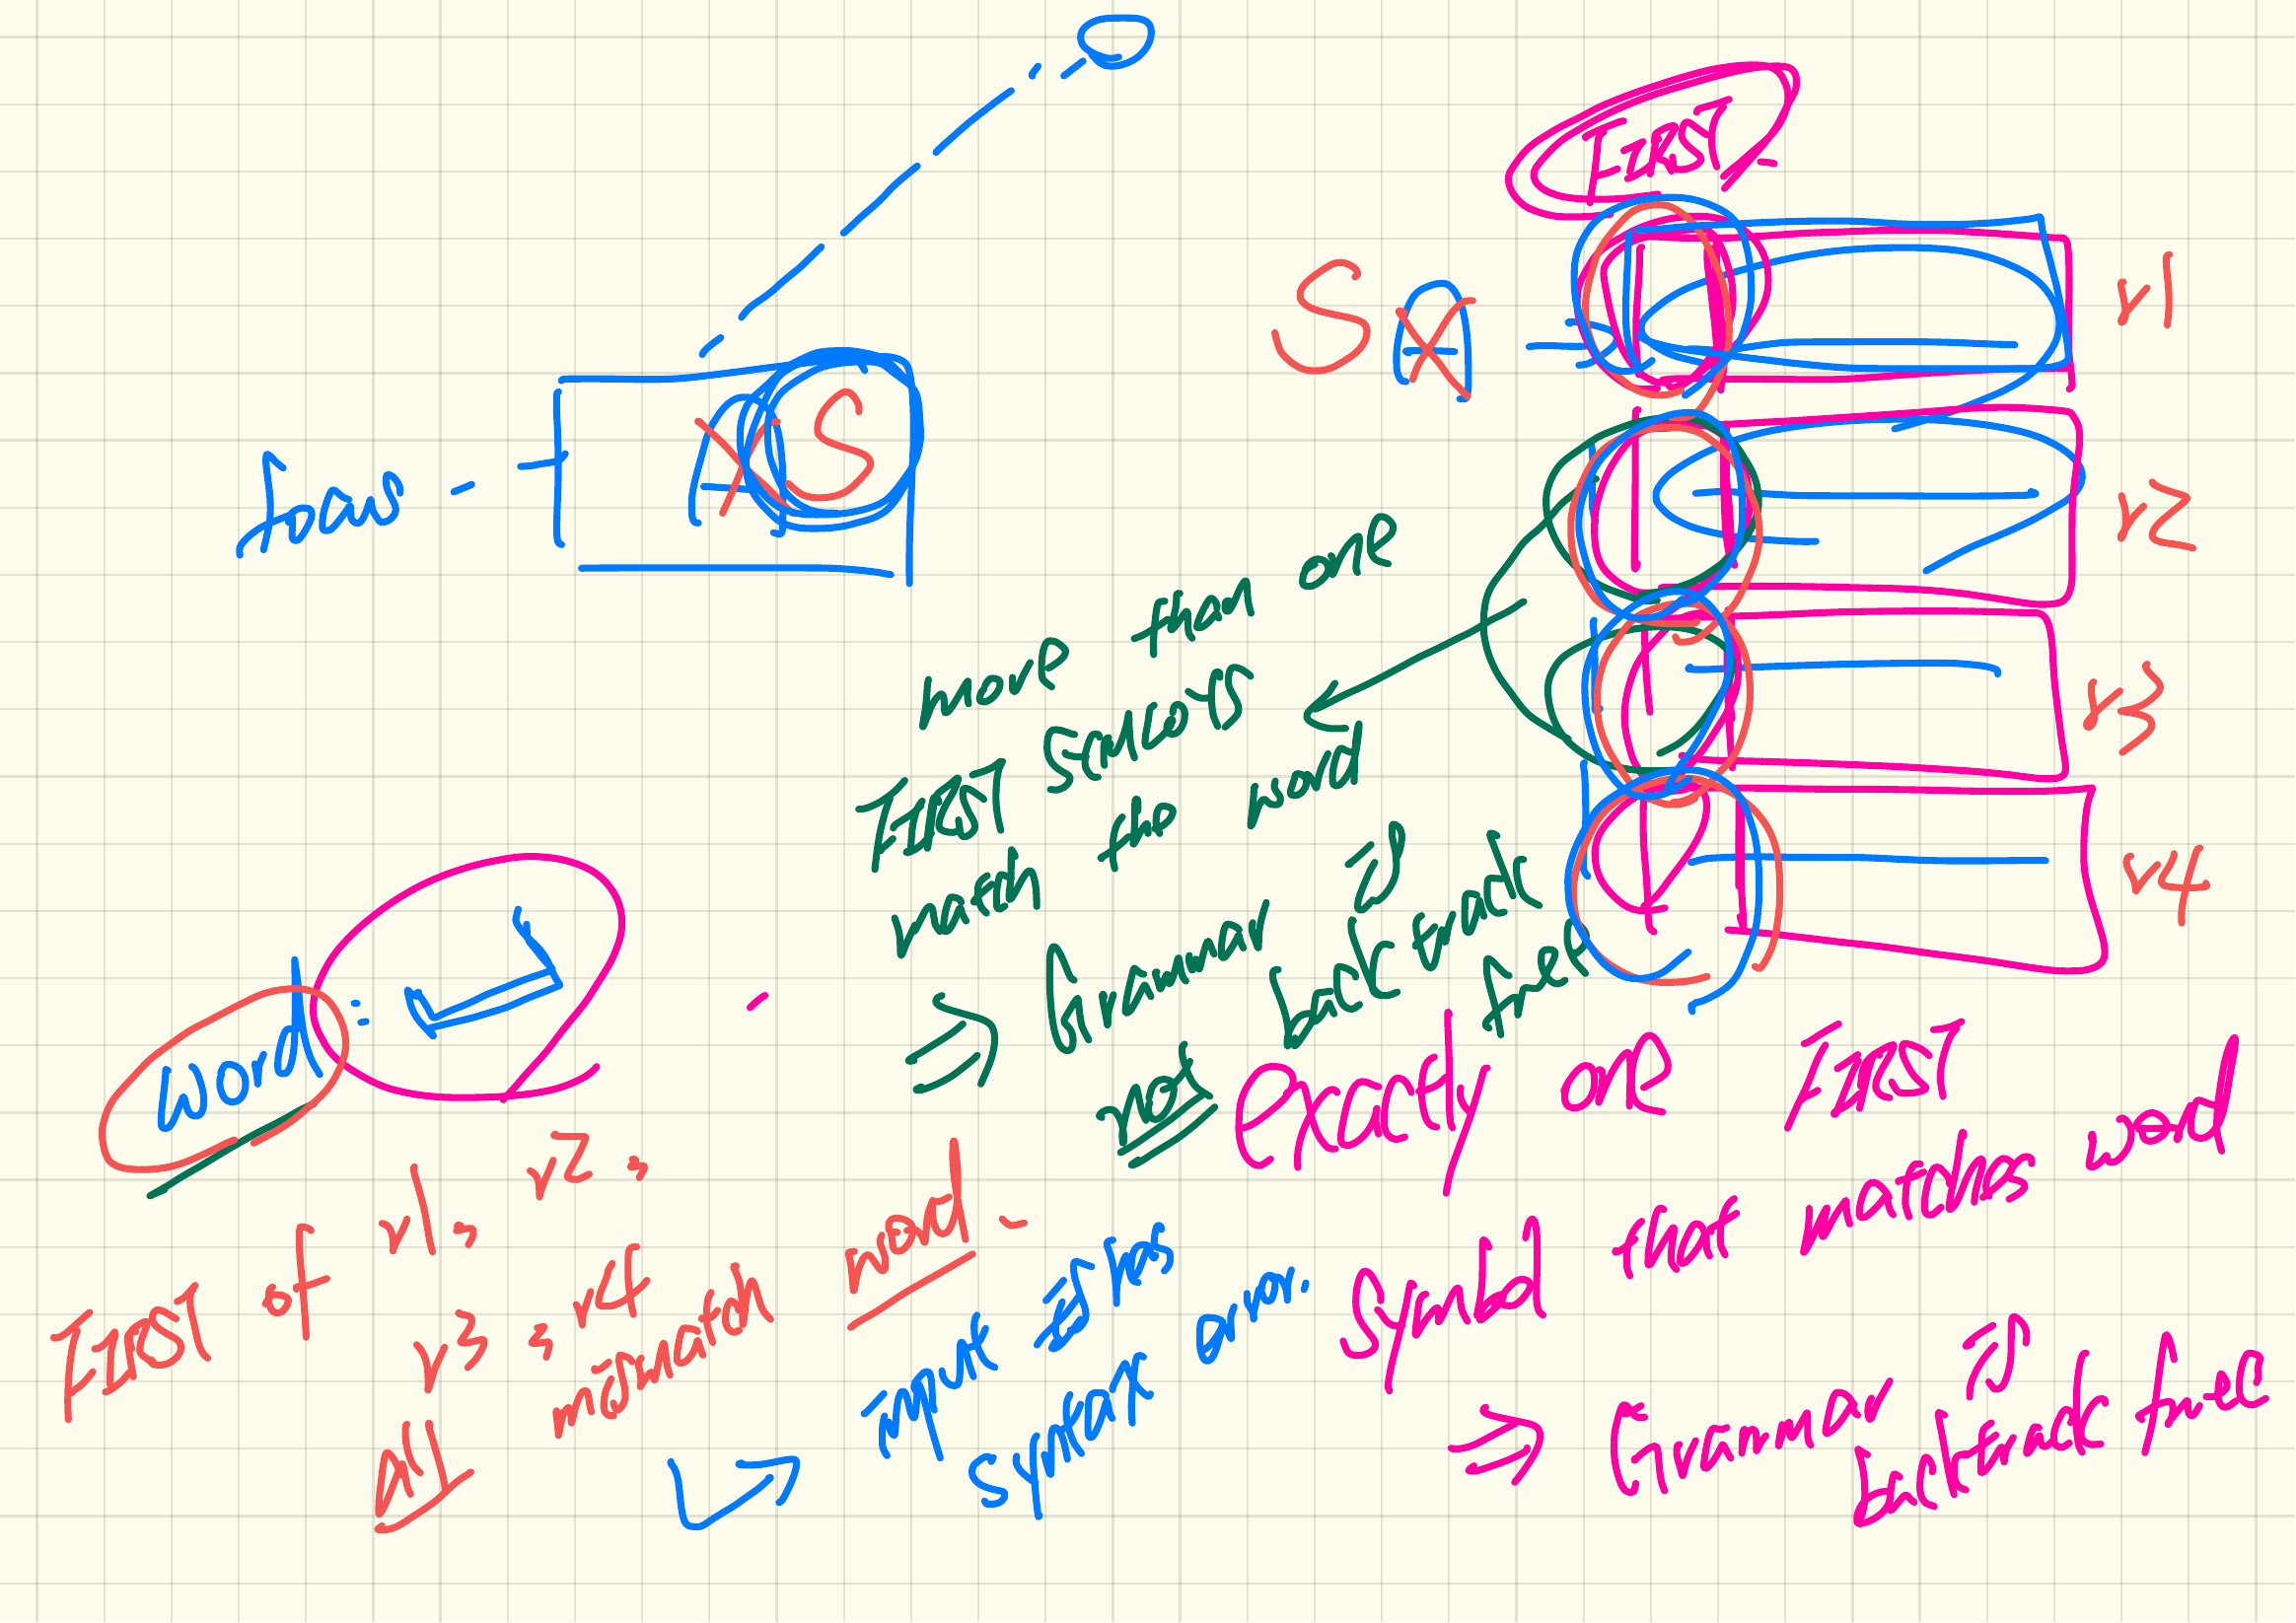 FIRST
S A →
r1
r2
r3
r4
focus -
A S
more than one
FIRST symbols
match the word
⇒ Grammar is
not backtrack
free
word :
FIRST of r1, r2,
r3, r4
All no match word -
↳ input has
syntax error.
exactly one FIRST
symbol that matches word
⇒ Grammar is
backtrack free